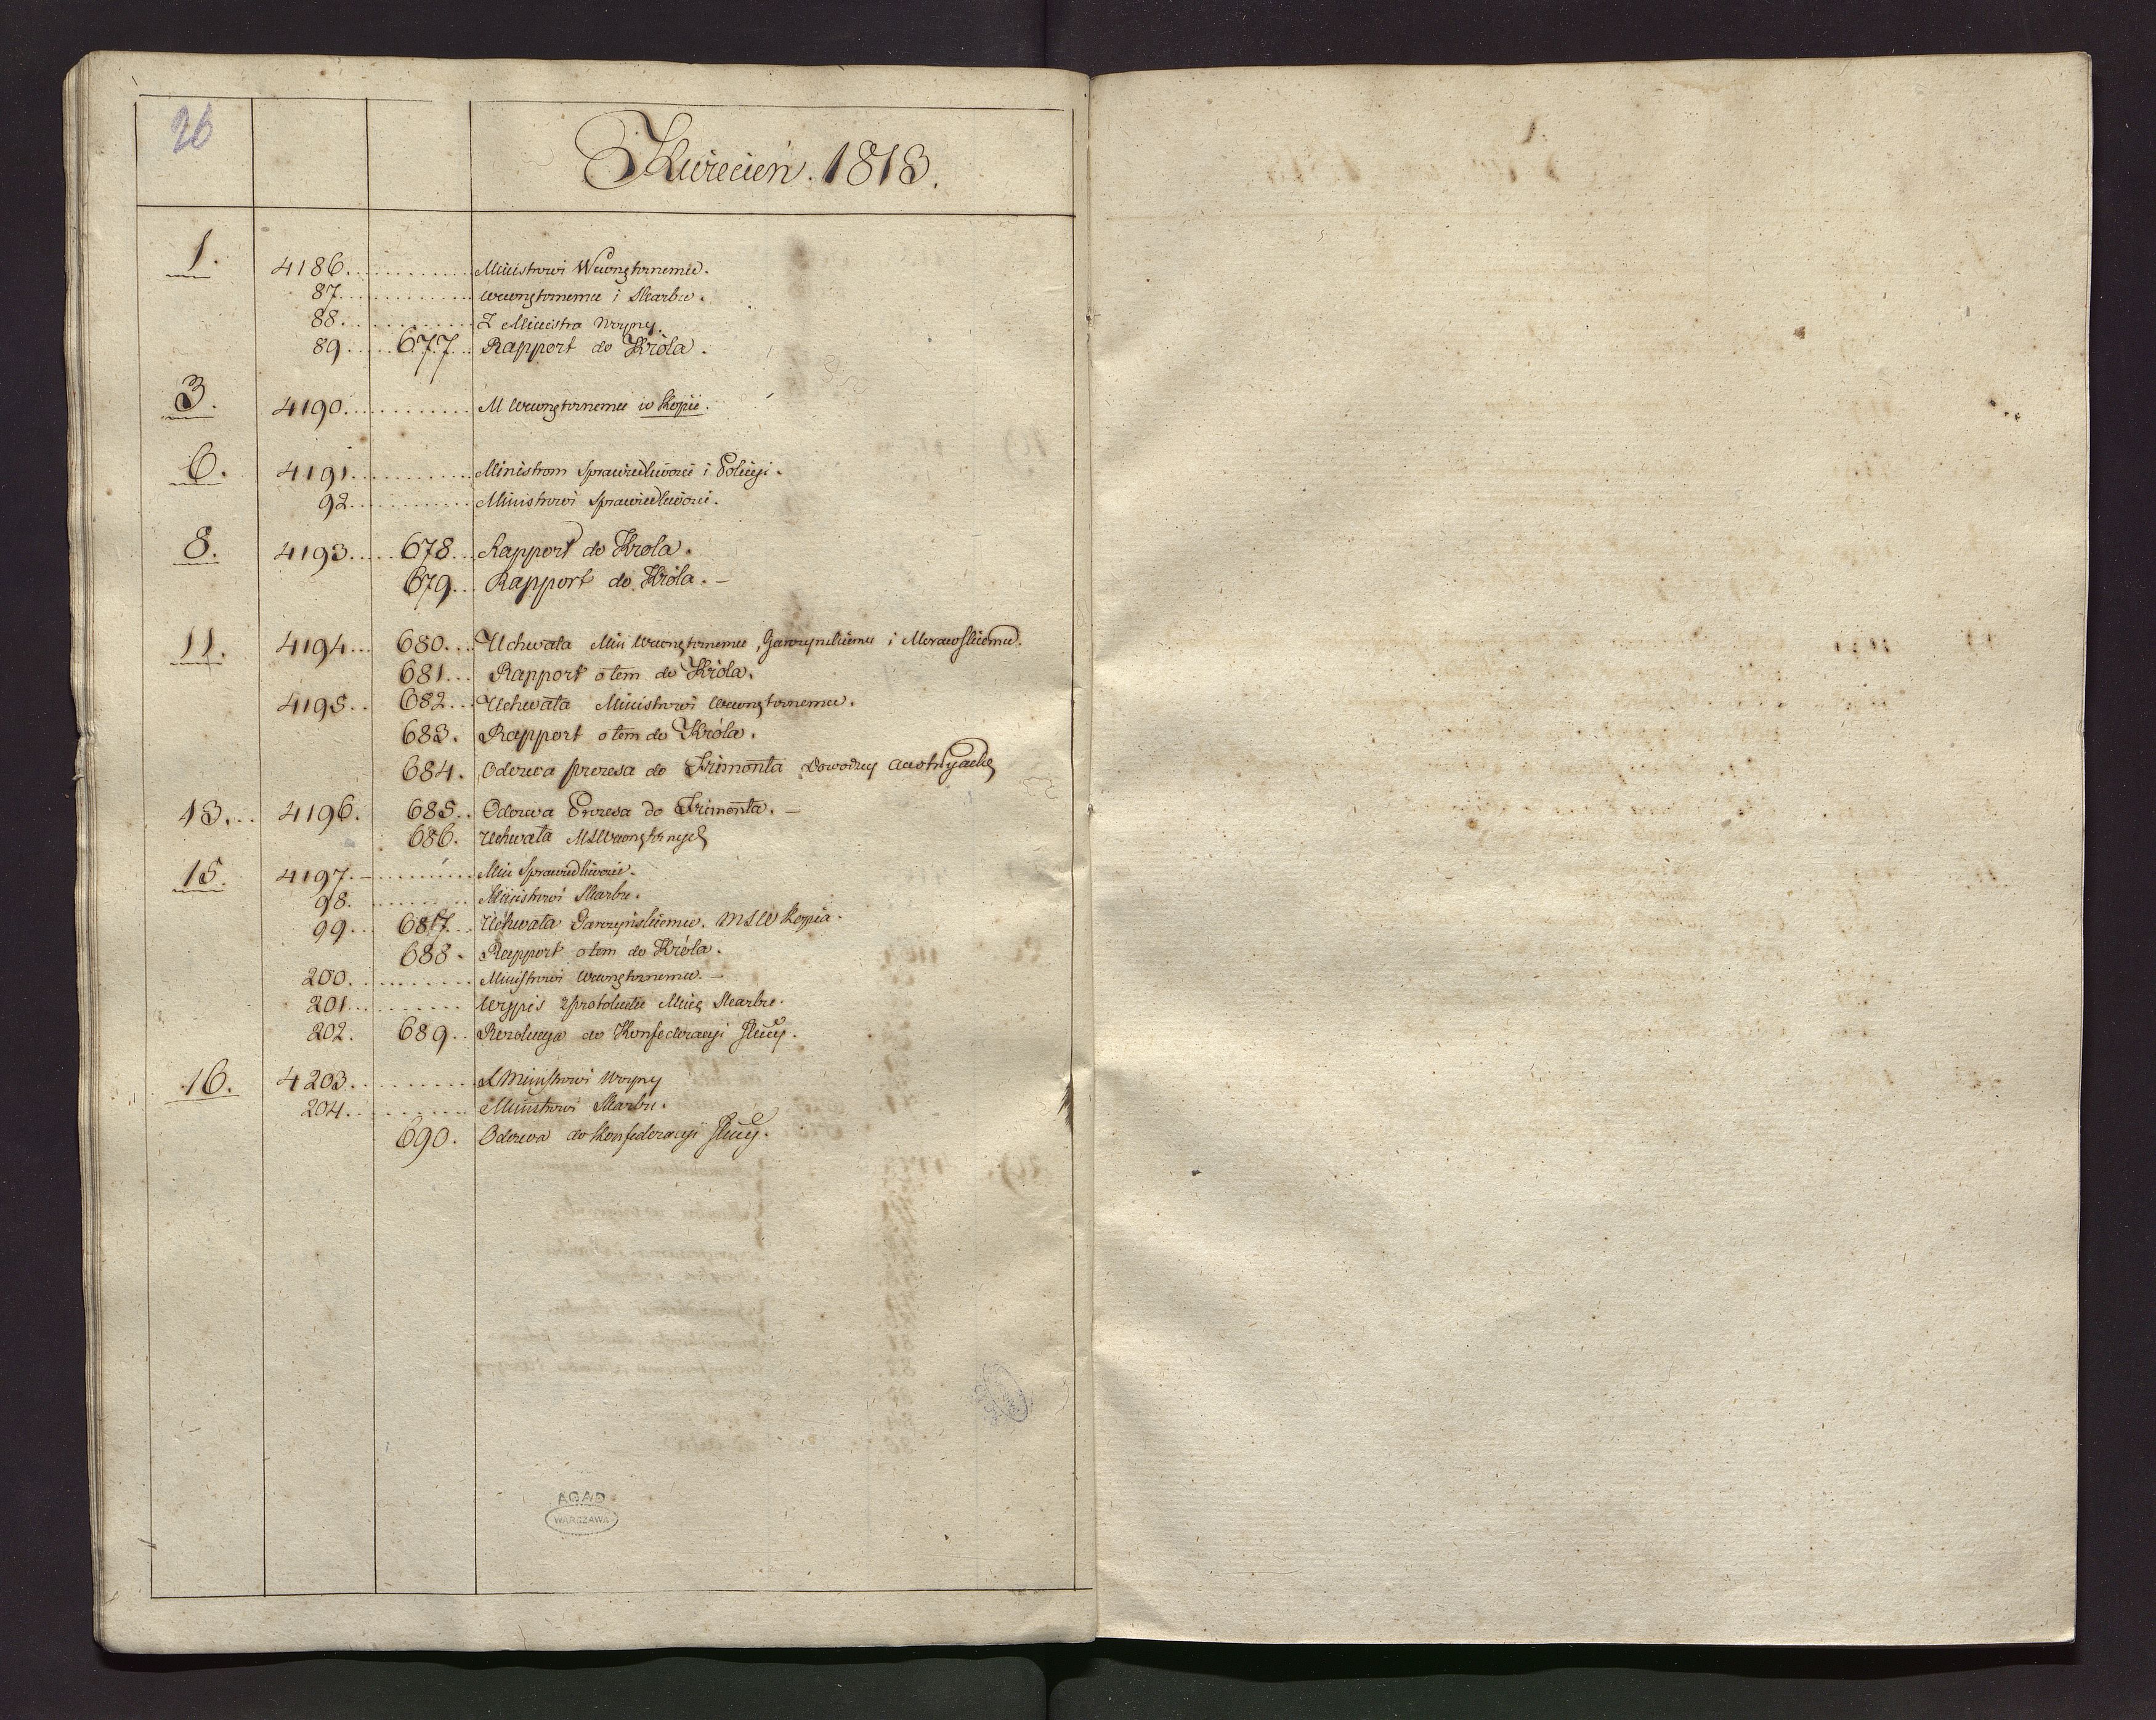 26
Kwiecień. 1813.
1. 4186. Ministrowi Wewnętrznemu.
87. Wewnętrznemu i Skarbu.
88. Z Ministra Woyny.
89. 677. Rapport do Króla.
3. 4190. M Wewnętrznemu w kopii.
6. 4191. Ministrom Sprawiedliwości i Policyi.
92. Ministrowi Sprawiedliwości.
8. 4193. 678. Rapport do Krola.
679. Rapport do Króla. –
11. 4194. 680. Uchwała Min Wewnętrznemu, Garczynskiemu i Morawskiemu.
681. Rapport o tem do Króla.
4195. 682. Uchwała Ministrowi Wewnętrznemu.
683. Rapport o tem do Króla.
684. Odezwa prezesa do Frimonta Dowodzcy
13. 4196. 685. Odezwa Prezesa do Frimonta. –
686. Uchwała MSWewnętrznych
15. 4197. Min Sprawiedliwości.
98. Ministrowi Skarbu.
99. 687. Uchwała Garczyńskiemu. MSW kopia.
688. Rapport o tem do Króla.
200. Ministrowi Wewnętrznemu. –
201. Wypis z protokułu Skarbu.
202. 689. Rezolucya do Konfederacyi
16. 4203. Ministrowi Woyny
204. Ministrowi Skarbu.
690. Odezwa do Konfederacyi
AGAD
WARSZAWA